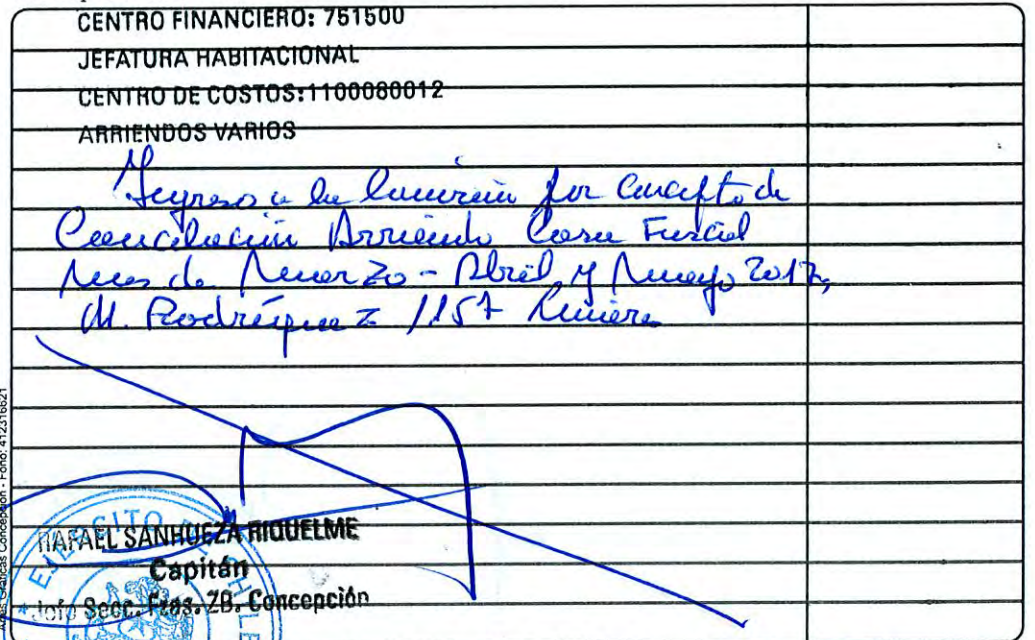 CENTRO FINANCIERO: 751500
JEFATURA HABITACIONAL
CENTRO DE COSTOS:1100080012
ARRIENDOS VARIOS
Ingreso a la por concepto de
Conciliación Arriendo Casa Fiscal
Mes de Marzo - Abril y Mayo 2017,
M. Rodríguez 1157
RAFAEL SANHUEZA RIQUELME
Capitán
Jefe Secc. Fzas. ZB. Concepción
EJERCITO CHILE
Artes Gráficas Concepción - Fono: 412316621